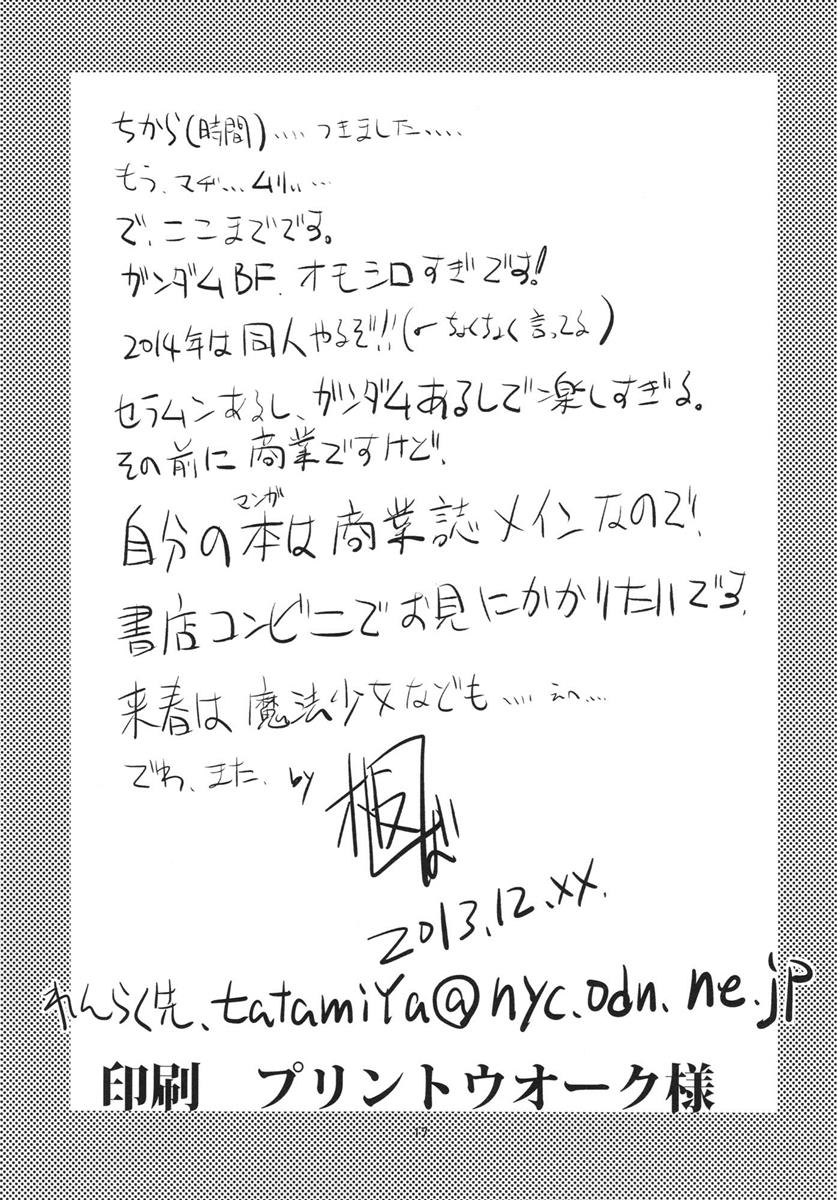 ちから(時間)....つきました....
もう、マヂ...ムリ...
で、ここまでです。
ガンダムBF、オモシロすぎです!
2014年は同人やるぞ!!(←ちょくちょく言ってる)
セラムンあるし、ガンダムあるしで楽しすぎる。
その前に商業ですけど、
マンガ
自分の本は商業誌メインなので!
書店コンビニでお見にかかりたいです。
来春は魔法少女なども....
でわ、また、by
2013.12.XX.
れんらく先、tatamiYa@nyc.odn.ne.jp
印刷　プリントウオーク様
17